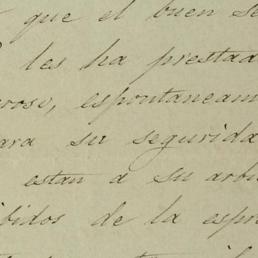 que el buen se
les ha prestad
rose, espontaneam
ara su segurida
estan a su arbi
bidos de la espre